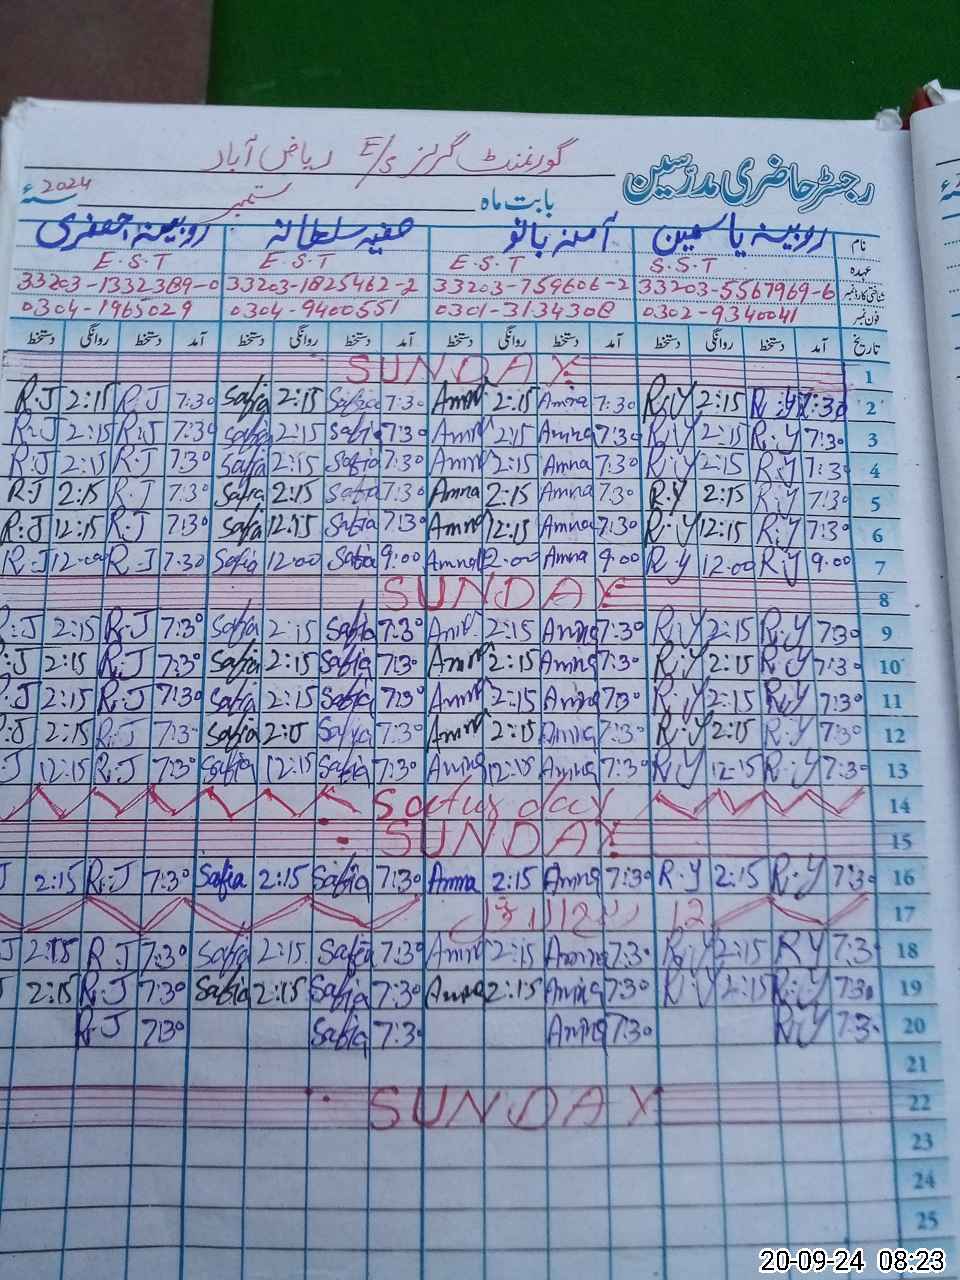 گورنمنٹ گرلز E/S ریاض آباد
رجسٹر حاضری مدرسین
بابت ماہ ستمبر 2024 سنہء
نام روبینہ یاسمین آمنہ بانو صفیہ سلطانہ روبینہ جعفری
عہدہ S.S.T E.S.T E.S.T E.S.T
شناختی کارڈ نمبر 33203-5567969-6 33203-759606-2 33203-1825462-2 33203-1332389-0
فون نمبر 0302-9340041 0301-3134308 0304-9400551 0304-1965029
تاریخ آمد دستخط روانگی دستخط آمد دستخط روانگی دستخط آمد دستخط روانگی دستخط آمد دستخط روانگی دستخط
SUNDAY 1
R.J 2:15 R.J 7:30 Safia 2:15 Safia 7:30 Amna 2:15 Amna 7:30 R.Y 2:15 R.Y 7:30 2
R.J 2:15 R.J 7:30 Safia 2:15 Safia 7:30 Amna 2:15 Amna 7:30 R.Y 2:15 R.Y 7:30 3
R.J 2:15 R.J 7:30 Safia 2:15 Safia 7:30 Amna 2:15 Amna 7:30 R.Y 2:15 R.Y 7:30 4
R.J 2:15 R.J 7:30 Safia 2:15 Safia 7:30 Amna 2:15 Amna 7:30 R.Y 2:15 R.Y 7:30 5
R.J 12:15 R.J 7:30 Safia 12:15 Safia 7:30 Amna 12:15 Amna 7:30 R.Y 12:15 R.Y 7:30 6
R.J 12:00 R.J 7:30 Safia 12:00 Safia 9:00 Amna 12:00 Amna 9:00 R.Y 12:00 R.Y 9:00 7
SUNDAY 8
R.J 2:15 R.J 7:30 Safia 2:15 Safia 7:30 Amna 2:15 Amna 7:30 R.Y 2:15 R.Y 7:30 9
R.J 2:15 R.J 7:30 Safia 2:15 Safia 7:30 Amna 2:15 Amna 7:30 R.Y 2:15 R.Y 7:30 10
R.J 2:15 R.J 7:30 Safia 2:15 Safia 7:30 Amna 2:15 Amna 7:30 R.Y 2:15 R.Y 7:30 11
R.J 2:15 R.J 7:30 Safia 2:15 Safia 7:30 Amna 2:15 Amna 7:30 R.Y 2:15 R.Y 7:30 12
J 12:15 R.J 7:30 Safia 12:15 Safia 7:30 Amna 12:15 Amna 7:30 R.Y 12:15 R.Y 7:30 13
Saturday 14
SUNDAY 15
J 2:15 R.J 7:30 Safia 2:15 Safia 7:30 Amna 2:15 Amna 7:30 R.Y 2:15 R.Y 7:30 16
12 ربیع الاول 17
J 2:15 R.J 7:30 Safia 2:15 Safia 7:30 Amna 2:15 Amna 7:30 R.Y 2:15 R.Y 7:30 18
J 2:15 R.J 7:30 Safia 2:15 Safia 7:30 Amna 2:15 Amna 7:30 R.Y 2:15 R.Y 7:30 19
R.J 7:30 Safia 7:30 Amna 7:30 R.Y 7:30 20
21
SUNDAY 22
23
24
25
20-09-24 08:23